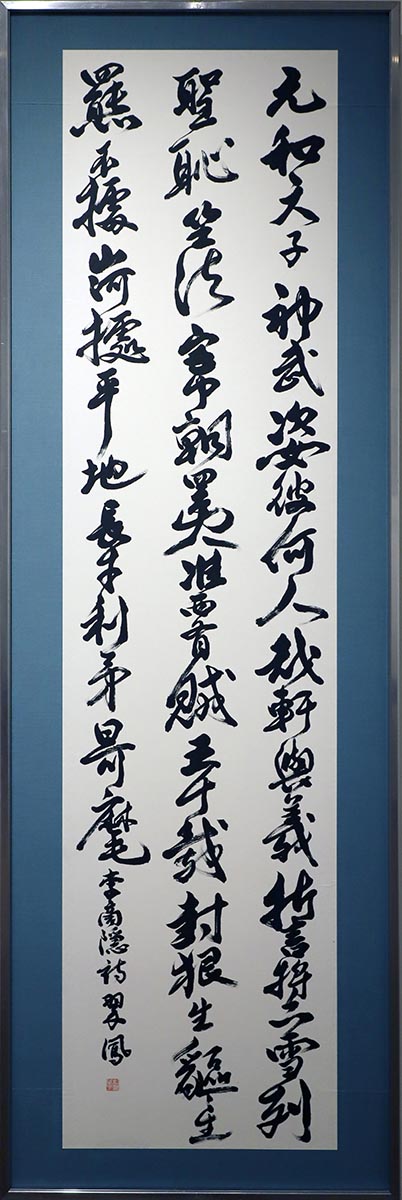 元和天子神武姿彼何人哉軒與羲誓言將上雪列
聖恥坐法宮中朝四夷淮西有賊五十載封狼生貙貙生
羆不據山河據平地長戈利矛日可麾李商隱詩翠鳳